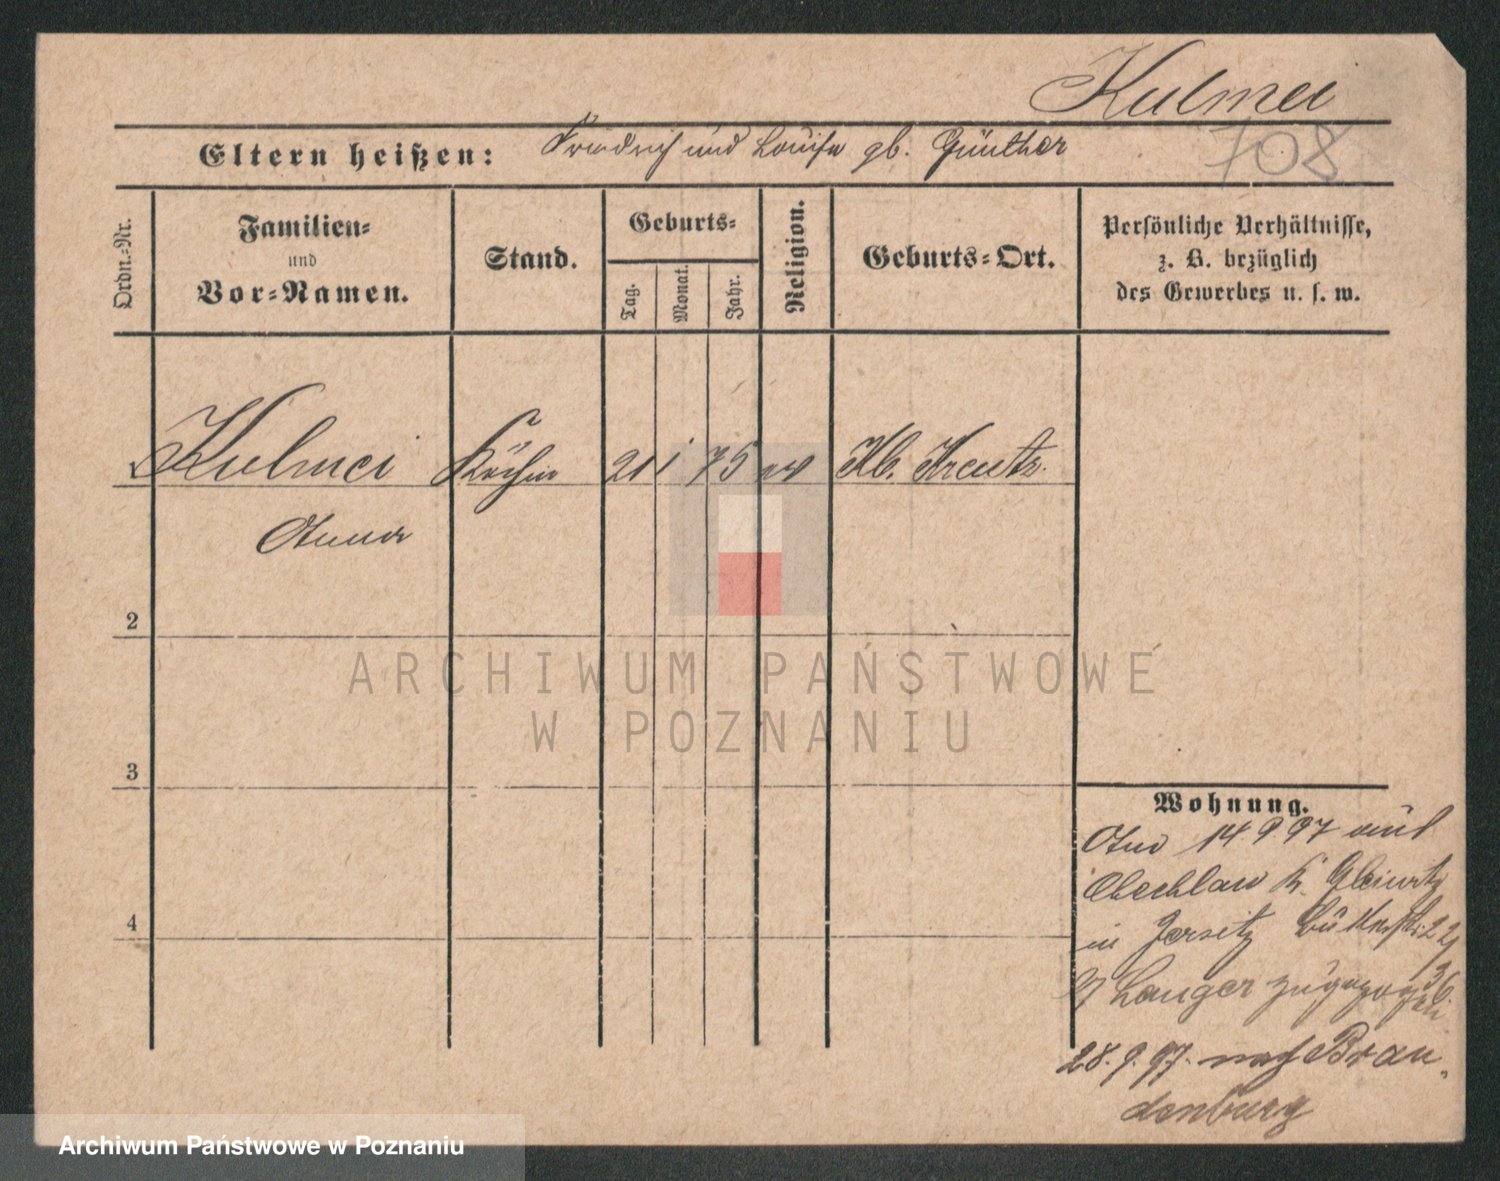 Kulmei
708
Eltern heißen: Friedrich und Louise gb. Günther
Ordn.-Nr.
Familien-
und
Vor-Namen.
Stand.
Geburts-
Tag.
Monat.
Jahr.
Religion.
Geburts-Ort.
Persönliche Verhältnisse,
z. B. bezüglich
des Gewerbes u. s. w.
Kulmei Köchin 21 1 75 ev Kl. Kreutz.
Anna
2
3
4
Wohnung.
14.9.97
Kr. Gleiwitz
in Jersitz 22/
36.
Langer zugezogen
28.9.97. nach Bran-
denburg
ARCHIWUM PAŃSTWOWE
W POZNANIU
Archiwum Państwowe w Poznaniu